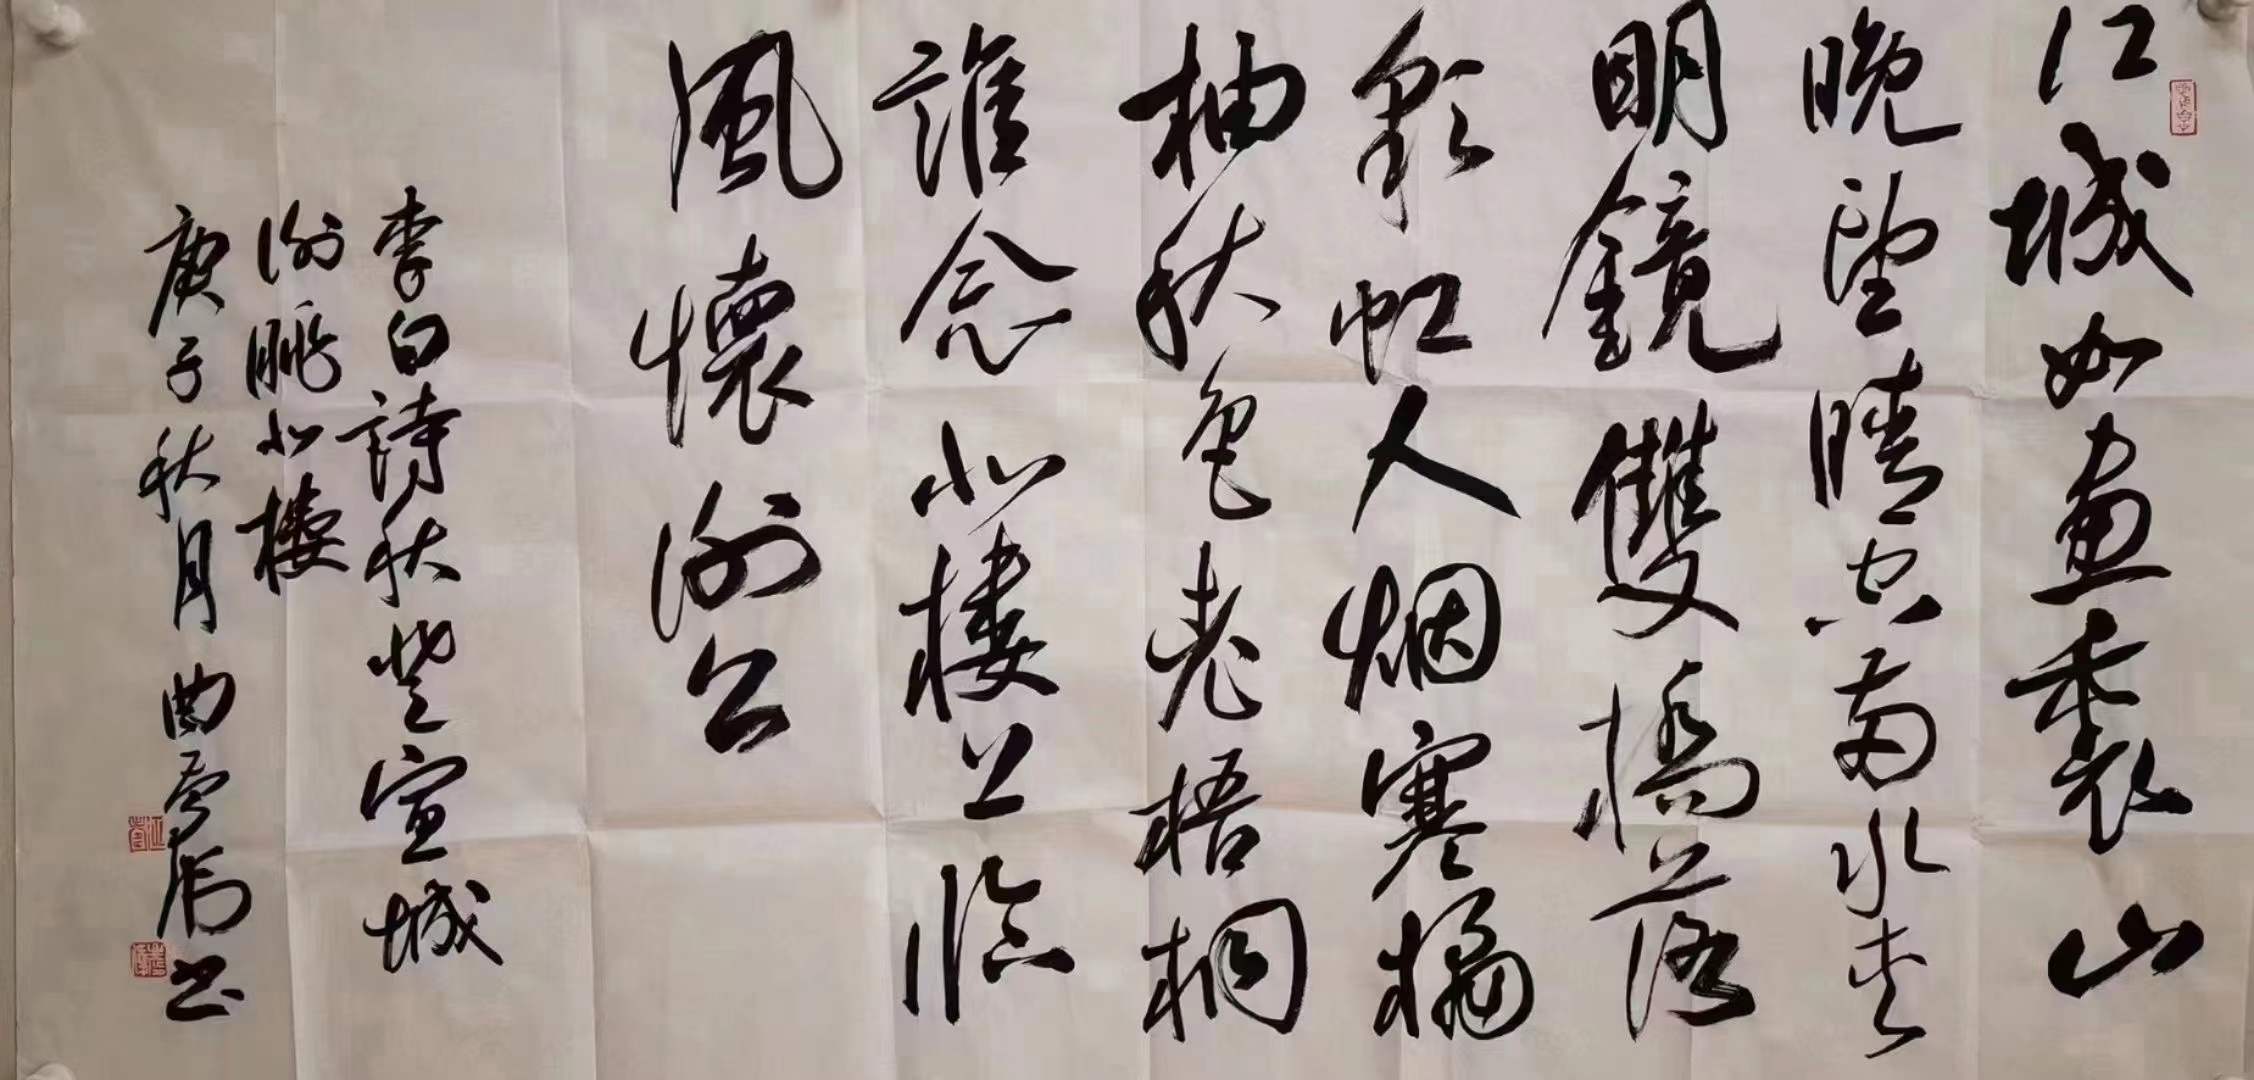 江城如畫裏山
晚望晴空兩水夹
明鏡雙橋上落
彩虹人烟寒橘
柚秋色老梧桐
誰念北樓上臨
風懷謝公
李白詩秋登宣城
謝眺北樓
庚子秋月曲 書